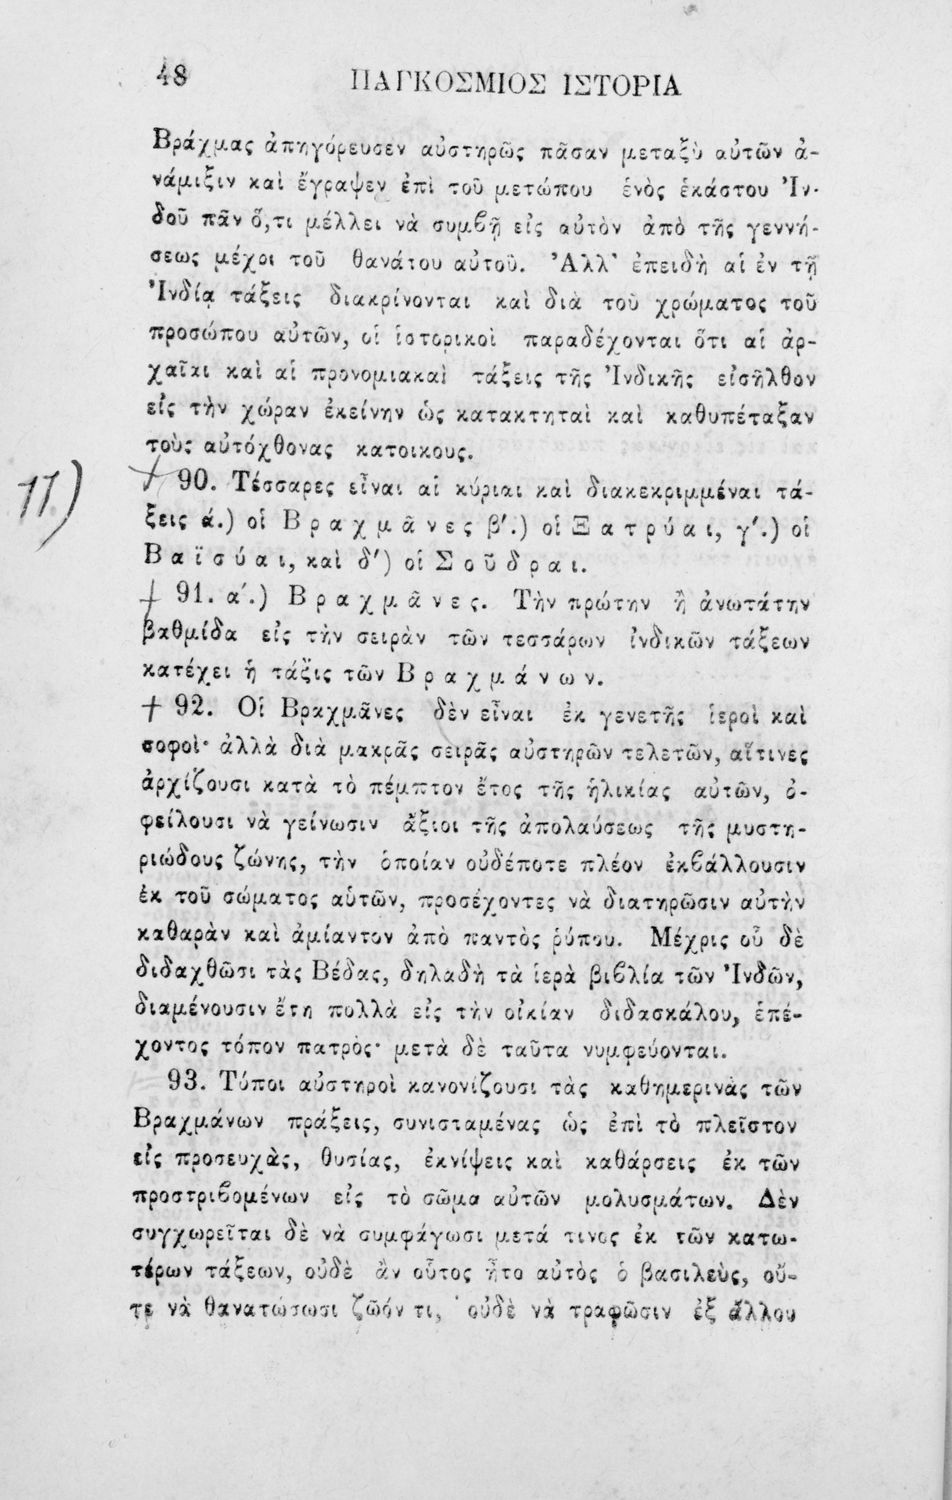 48
ΠΑΓΚΟΣΜΙΟΣ ΙΣΤΟΡΙΑ
Βράχμας ἀπηγόρευσεν αὐστηρῶς πᾶσαν μεταξὺ αὐτῶν ἀ-
νάμιξιν καὶ ἔγραψεν ἐπὶ τοῦ μετώπου ἑνὸς ἑκάστου Ἰν-
δοῦ πᾶν ὅ,τι μέλλει νὰ συμβῇ εἰς αὐτὸν ἀπὸ τῆς γεννή-
σεως μέχρι τοῦ θανάτου αὐτοῦ. Ἀλλ' ἐπειδὴ αἱ ἐν τῇ
Ἰνδίᾳ τάξεις διακρίνονται καὶ διὰ τοῦ χρώματος τοῦ
προσώπου αὐτῶν, οἱ ἱστορικοὶ παραδέχονται ὅτι αἱ ἀρ-
χαῖαι καὶ αἱ προνομιακαὶ τάξεις τῆς Ἰνδικῆς εἰσῆλθον
εἰς τὴν χώραν ἐκείνην ὡς κατακτηταὶ καὶ καθυπέταξαν
τοὺς αὐτόχθονας κατοικους.
11)
+ 90. Τέσσαρες εἶναι αἱ κύριαι καὶ διακεκριμμέναι τά-
ξεις ά.) οἱ Βραχμᾶνες β'.) οἱ Ξατρύαι, γ'.) οἱ
Βαϊσύαι, καὶ δ') οἱ Σοῦδραι.
+ 91. α'.) Βραχμᾶνες. Τὴν πρώτην ἢ ἀνωτάτην
βαθμίδα εἰς τὴν σειρὰν τῶν τεσσάρων ἰνδικῶν τάξεων
κατέχει ἡ τάξις τῶν Βραχμάνων.
+ 92. Οἱ Βραχμᾶνες δὲν εἶναι ἐκ γενετῆς ἱεροὶ καὶ
σοφοὶ· ἀλλὰ διὰ μακρᾶς σειρᾶς αὐστηρῶν τελετῶν, αἵτινες
ἀρχίζουσι κατὰ τὸ πέμπτον ἔτος τῆς ἡλικίας αὐτῶν, ὀ-
φείλουσι νὰ γείνωσιν ἄξιοι τῆς ἀπολαύσεως τῆς μυστη-
ριώδους ζώνης, τὴν ὁποίαν οὐδέποτε πλέον ἐκβάλλουσιν
ἐκ τοῦ σώματος αὑτῶν, προσέχοντες νὰ διατηρῶσιν αὐτὴν
καθαρὰν καὶ ἀμίαντον ἀπὸ παντὸς ῥύπου. Μέχρις οὗ δὲ
διδαχθῶσι τὰς Βέδας, δηλαδὴ τὰ ἱερὰ βιβλία τῶν Ἰνδῶν,
διαμένουσιν ἔτη πολλὰ εἰς τὴν οἰκίαν διδασκάλου, ἐπέ-
χοντος τόπον πατρὸς· μετὰ δὲ ταῦτα νυμφεύονται.
93. Τύποι αὐστηροὶ κανονίζουσι τὰς καθημερινὰς τῶν
Βραχμάνων πράξεις, συνισταμένας ὡς ἐπὶ τὸ πλεῖστον
εἰς προσευχὰς, θυσίας, ἐκνίψεις καὶ καθάρσεις ἐκ τῶν
προστριβομένων εἰς τὸ σῶμα αὐτῶν μολυσμάτων. Δὲν
συγχωρεῖται δὲ νὰ συμφάγωσι μετά τινος ἐκ τῶν κατω-
τέρων τάξεων, οὐδὲ ἂν οὗτος ἦτο αὐτὸς ὁ βασιλεὺς, οὔ-
τε νὰ θανατώσωσι ζῶόν τι, οὐδὲ νὰ τραφῶσιν ἐξ ἄλλου